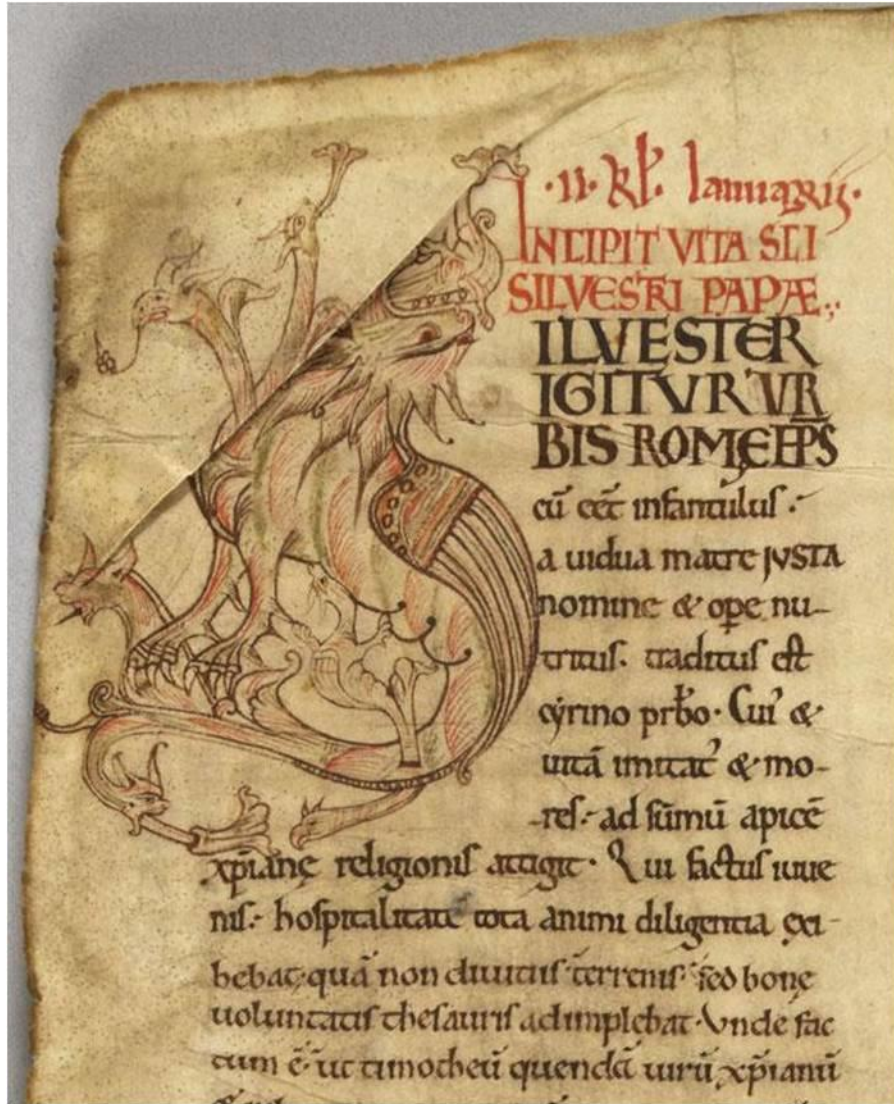 ·II· Kł· Ianuarii·
INCIPIT VITA SCI
SILVESTRI PAPÆ
ILVESTER
IGITVR VR
BIS ROMĘ EPS̄
cū cēt infantulus·
a uidua matre IVSTA
nomine & oꝑe nu-
tritus· traditus est
cyrino prb̄o· Cui᾽ &
uitā imitat᾽ & mo-
res· ad sūmū apicē
xp̄ianę religionis attigit· Qui factus iuue
nis· hospitalitatē tota animi diligentia exi-
bebat· quā non diuitiis terrenis· sed bonę
uoluntatis thesauris adimplebat· Vnde fac
tum ē· ut timotheū quendā uirū xp̄ianū